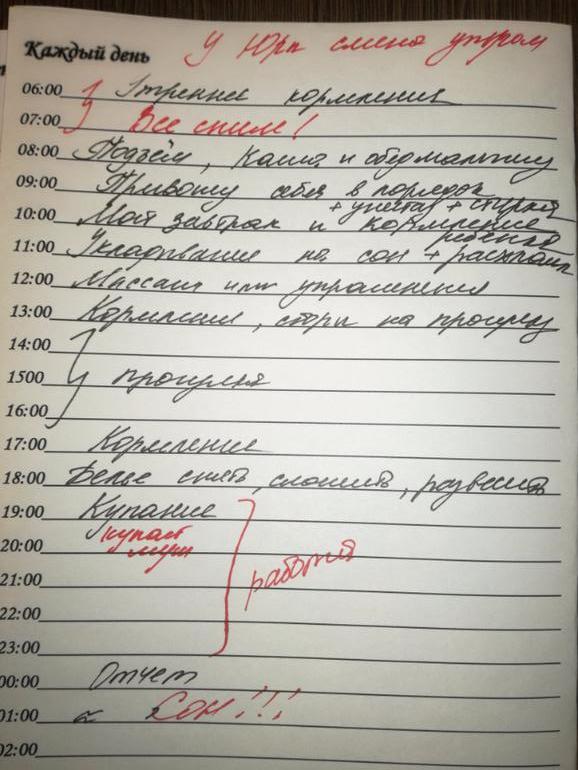 Каждый день У Юры смена утром
06:00 Утреннее кормление
07:00 Все спим!
08:00 Подъём, Каша и обед малышу
09:00 Привожу себя в порядок
+ + стирка
10:00 Мой завтрак и кормление
ребенка
11:00 Укладывание на сон +
12:00 Массаж или упражнения
13:00 Кормление, сборы на прогулку
14:00
1500 прогулка
16:00
17:00 Кормление
18:00 Белье снять, сложить, развесить
19:00 Купание
купает
муж
20:00
21:00 работа
22:00
23:00
00:00 Отчет
01:00 ~ Сон!!!
02:00